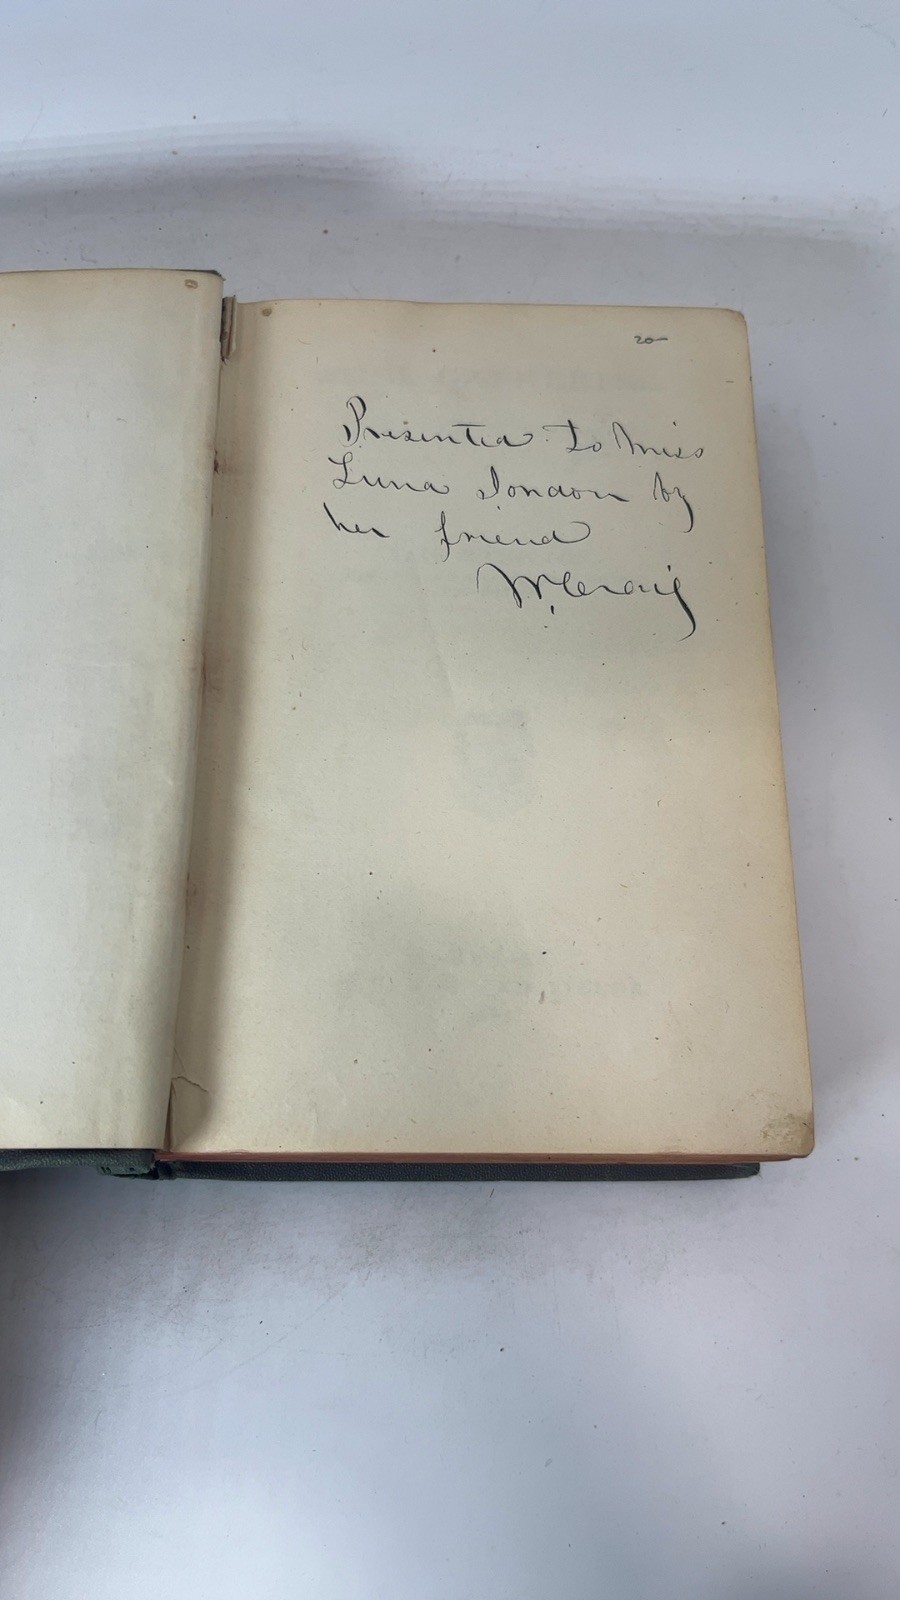 20—
Presented to Miss
Luna London by
her friend
W. Craig